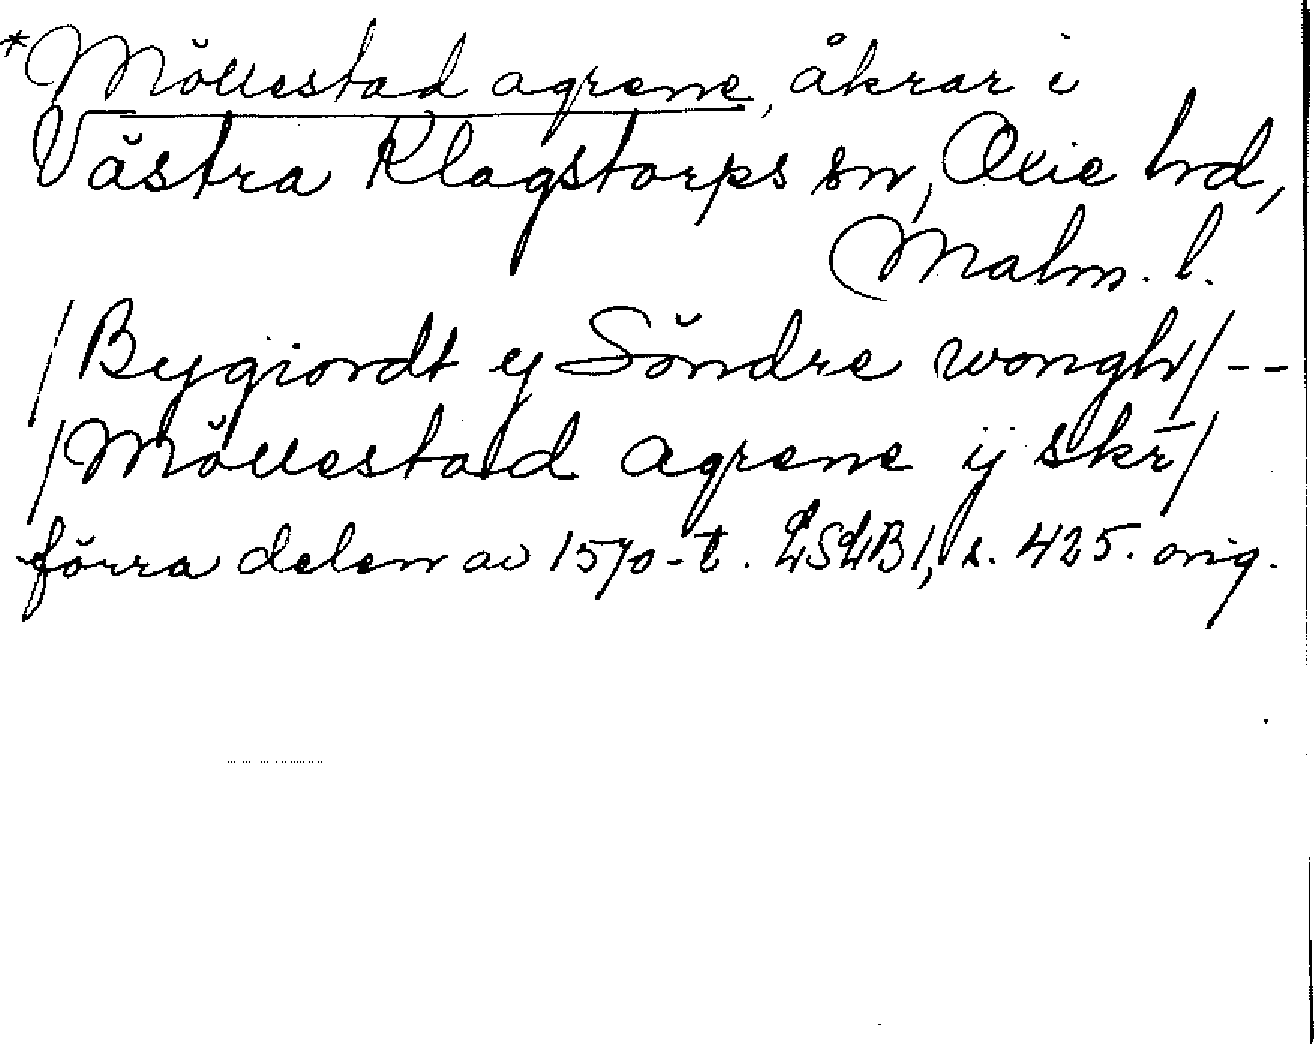 *Möllestad agrene, åkrar i
Västra Klagstorps sn, Oxie hd,
Malm. l.
/Bygiordt ÿ Söndre wongh/--
/Möllestad agrene ij skr̄/
förra delen av 1570-t. LSLB I, s. 425. orig.